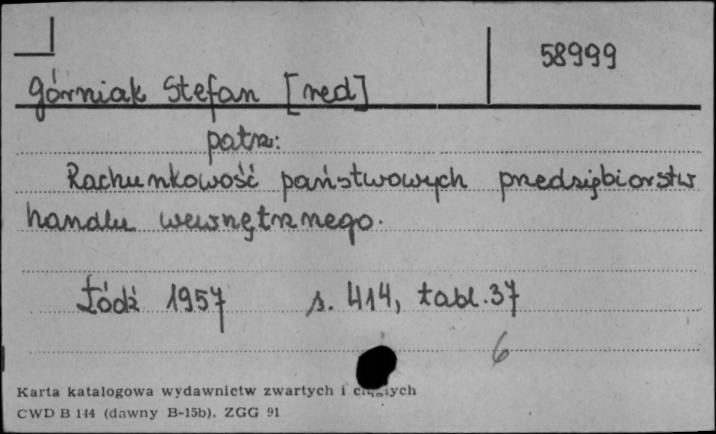 58999
Górniak Stefan [red]
patrz:
Rachunkowość państwowych przedsiębiorstw
handlu wewnętrznego.
Łódź 1957 s. 414, tabl. 37
6
Karta katalogowa wydawnictw zwartych i ciągłych
CWD B 144 (dawny B-15b). ZGG 91